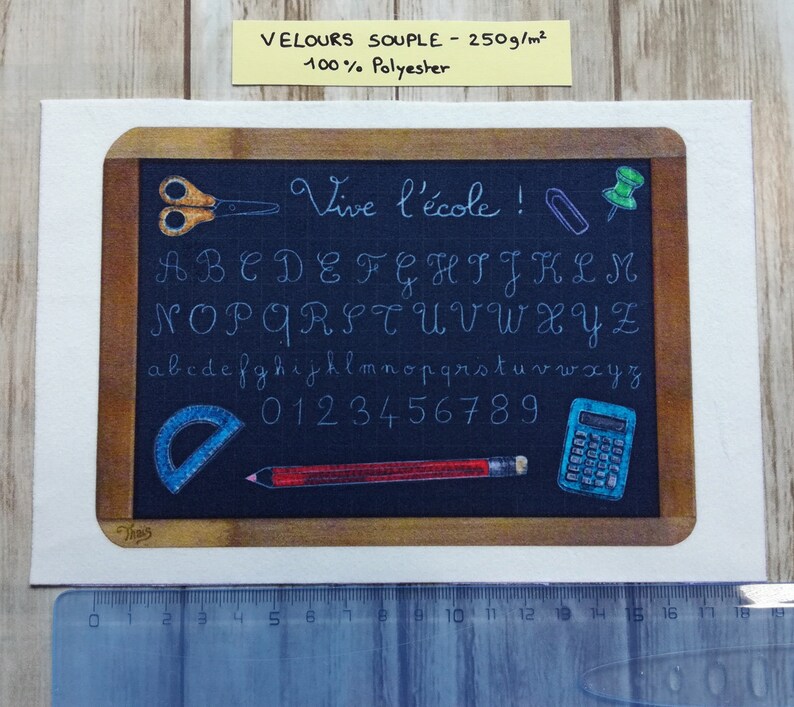 VELOURS SOUPLE - 250g/m²
100% Polyester
Vive l'école !
A B C D E F G H I J K L M
N O P Q R S T U V W X Y Z
a b c d e f g h i j k l m n o p q r s t u v w x y z
0 1 2 3 4 5 6 7 8 9
Thaïs
0 1 2 3 4 5 6 7 8 9 10 11 12 13 14 15 16 17 18 19